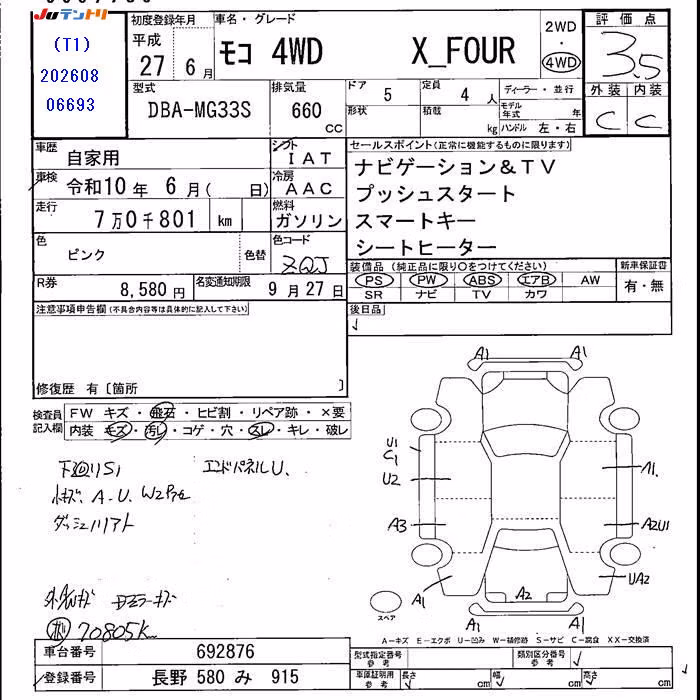 JUテントリ
(T1)
202608
06693
初度登録年月
平成
27 6月
車名・グレード
モコ 4WD X_FOUR
2WD
・
4WD
評価点
3.5
外装 内装
C C
型式
DBA-MG33S
排気量
660
cc
ドア
5
定員
4 人
形状
積載
kg
ディーラー・並行
モデル
年式 年
ハンドル 左・右
車歴
自家用
シフト
IAT
車検
令和10年 6月( 日)
冷房
AAC
走行
7万0千801 km
燃料
ガソリン
色
ピンク
色替
色コード
ZQJ
R券
8,580円
名変通知期限
9月27日
セールスポイント(正常に機能するものに限ります)
ナビゲーション&TV
プッシュスタート
スマートキー
シートヒーター
装備品(純正品に限り○をつけてください)
PS PW ABS エアB AW
SR ナビ TV カワ
新車保証書
有・無
注意事項申告欄(不具合内容等は具体的に記入して下さい)
後日品
修復歴 有[箇所 ]
検査員
記入欄
FW キズ・飛石・ヒビ割・リペア跡・×要
内装 キズ・汚レ・コゲ・穴・スレ・キレ・破レ
下廻りS1 エンドパネルU.
A.U.
70805K
A1 A1
U1
C1
U2
A1.
A3
A2U1
A1
A2
UA2
A1 A1
スペア
A-キズ E-エクボ U-凹み W-補修跡 S-サビ C-腐食 XX-交換済
車台番号
692876
登録番号
長野 580 み 915
型式指定番号
参考
類別区分番号
参考
車庫証明用
参考
長さ cm
幅 cm
高さ cm